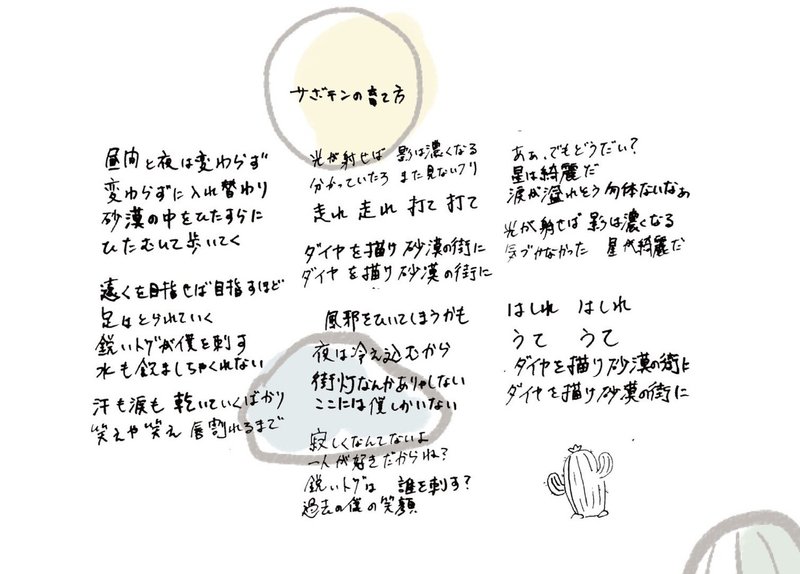 サボテンの育て方
昼間と夜は変わらず
変わらずに入れ替わり
砂漠の中をひたすらに
ひたむいて歩いてく
遠くを目指せば目指すほど
足はとられていく
鋭いトゲが僕を刺す
水も飲ましちゃくれない
汗も涙も 乾いていくばかり
笑えや笑え 唇割れるまで
光が射せば 影は濃くなる
分かっていたろ また見ないフリ
走れ 走れ 打て 打て
ダイヤを描り 砂漠の街に
ダイヤを描り 砂漠の街に
風邪をひいてしまうかも
夜は冷え込むから
街灯なんかありゃしない
ここには僕しかいない
寂しくなんてないよ
一人が好きだからね?
鋭いトゲは 誰を刺す?
過去の僕の笑顔
あぁ、でもどうだい?
星は綺麗だ
涙が溢れそう 勿体ないなぁ
光が射せば 影は濃くなる
気づかなかった 星が綺麗だ
はしれ はしれ
うて うて
ダイヤを描り 砂漠の街に
ダイヤを描り 砂漠の街に